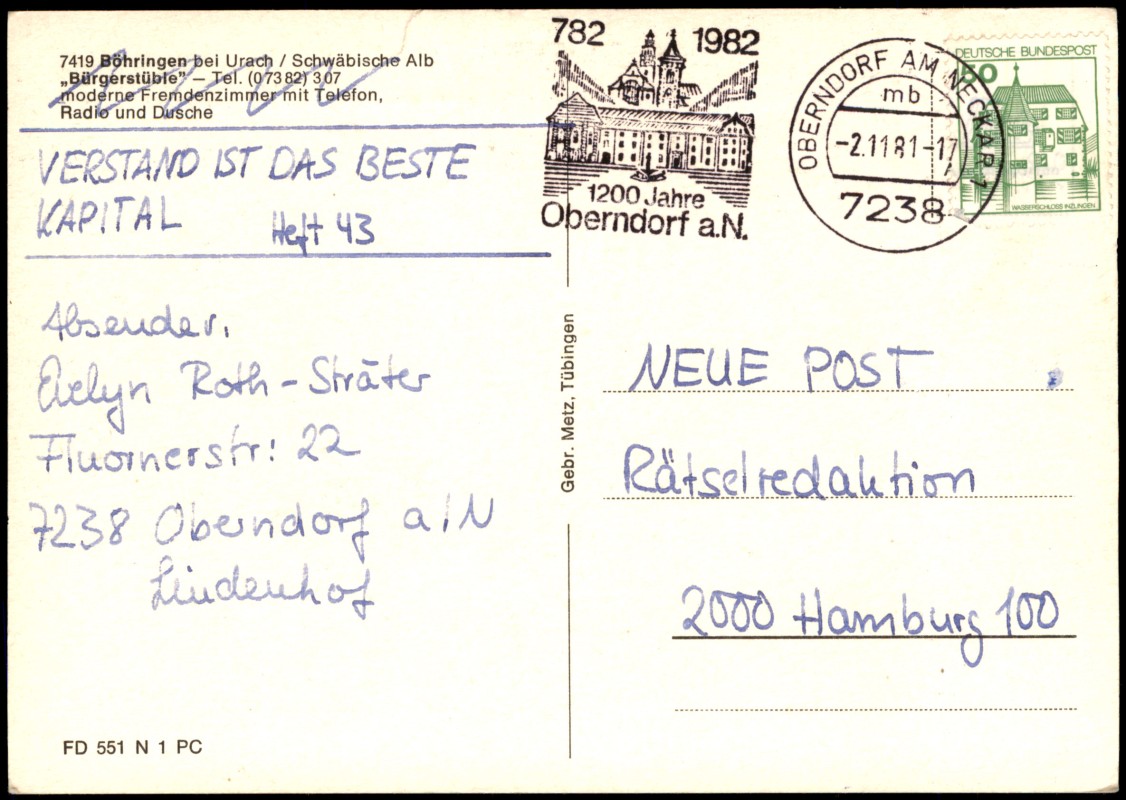 7419 Böhringen bei Urach / Schwäbische Alb
„Bürgerstüble" — Tel. (07382) 307
moderne Fremdenzimmer mit Telefon,
Radio und Dusche
VERSTAND IST DAS BESTE
KAPITAL Heft 43
Absender:
Evelyn Roth-Sträter
Fluornerstr: 22
7238 Oberndorf a/N
Lindenhof
FD 551 N 1 PC
Gebr. Metz, Tübingen
782 1982
1200 Jahre
Oberndorf a.N.
OBERNDORF AM NECKAR 1
mb
-2.11.81-17
7238
DEUTSCHE BUNDESPOST
WASSERSCHLOSS INZLINGEN
NEUE POST
Rätselredaktion
2000 Hamburg 100